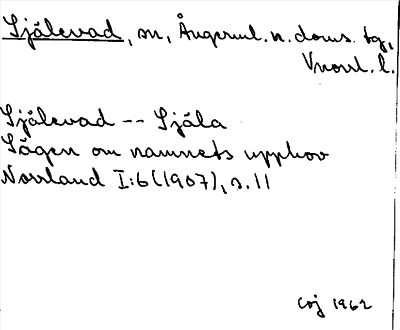 Själevad, sn, Ångerml. n. doms. tg,
Vnorrl. l.
Själevad -- Själa
Sägen om namnets upphov
Norrland I:6 (1907), s. 11
COJ 1962